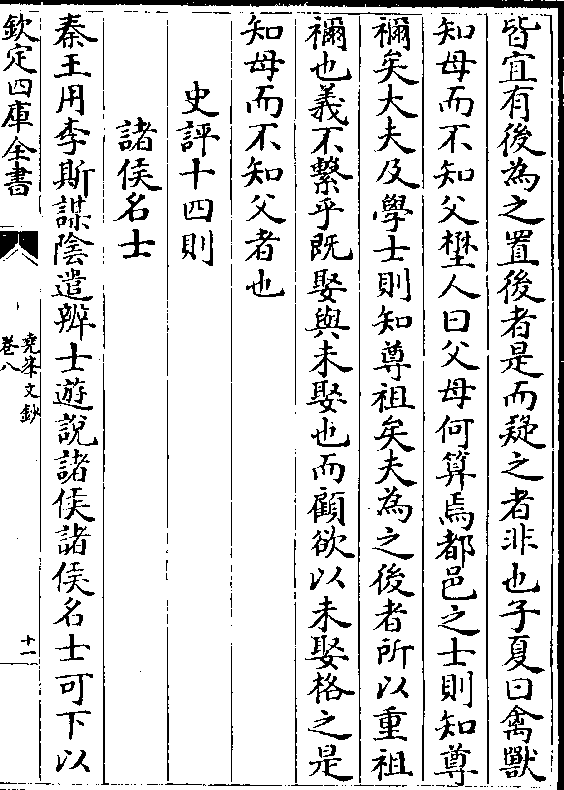 皆宜有後為之置後者是而疑之者非也子夏曰禽獸
知母而不知父壄人曰父母何算焉都邑之士則知尊
禰矣大夫及學士則知尊祖矣夫為之後者所以重祖
禰也義不繫乎既娶與未娶也而顧欲以未娶格之是
知母而不知父者也
史評十四則
諸侯名士
秦王用李斯謀陰遣辨士遊說諸侯諸侯名士可下以
欽定四庫全書
堯峯文鈔
卷八
十一